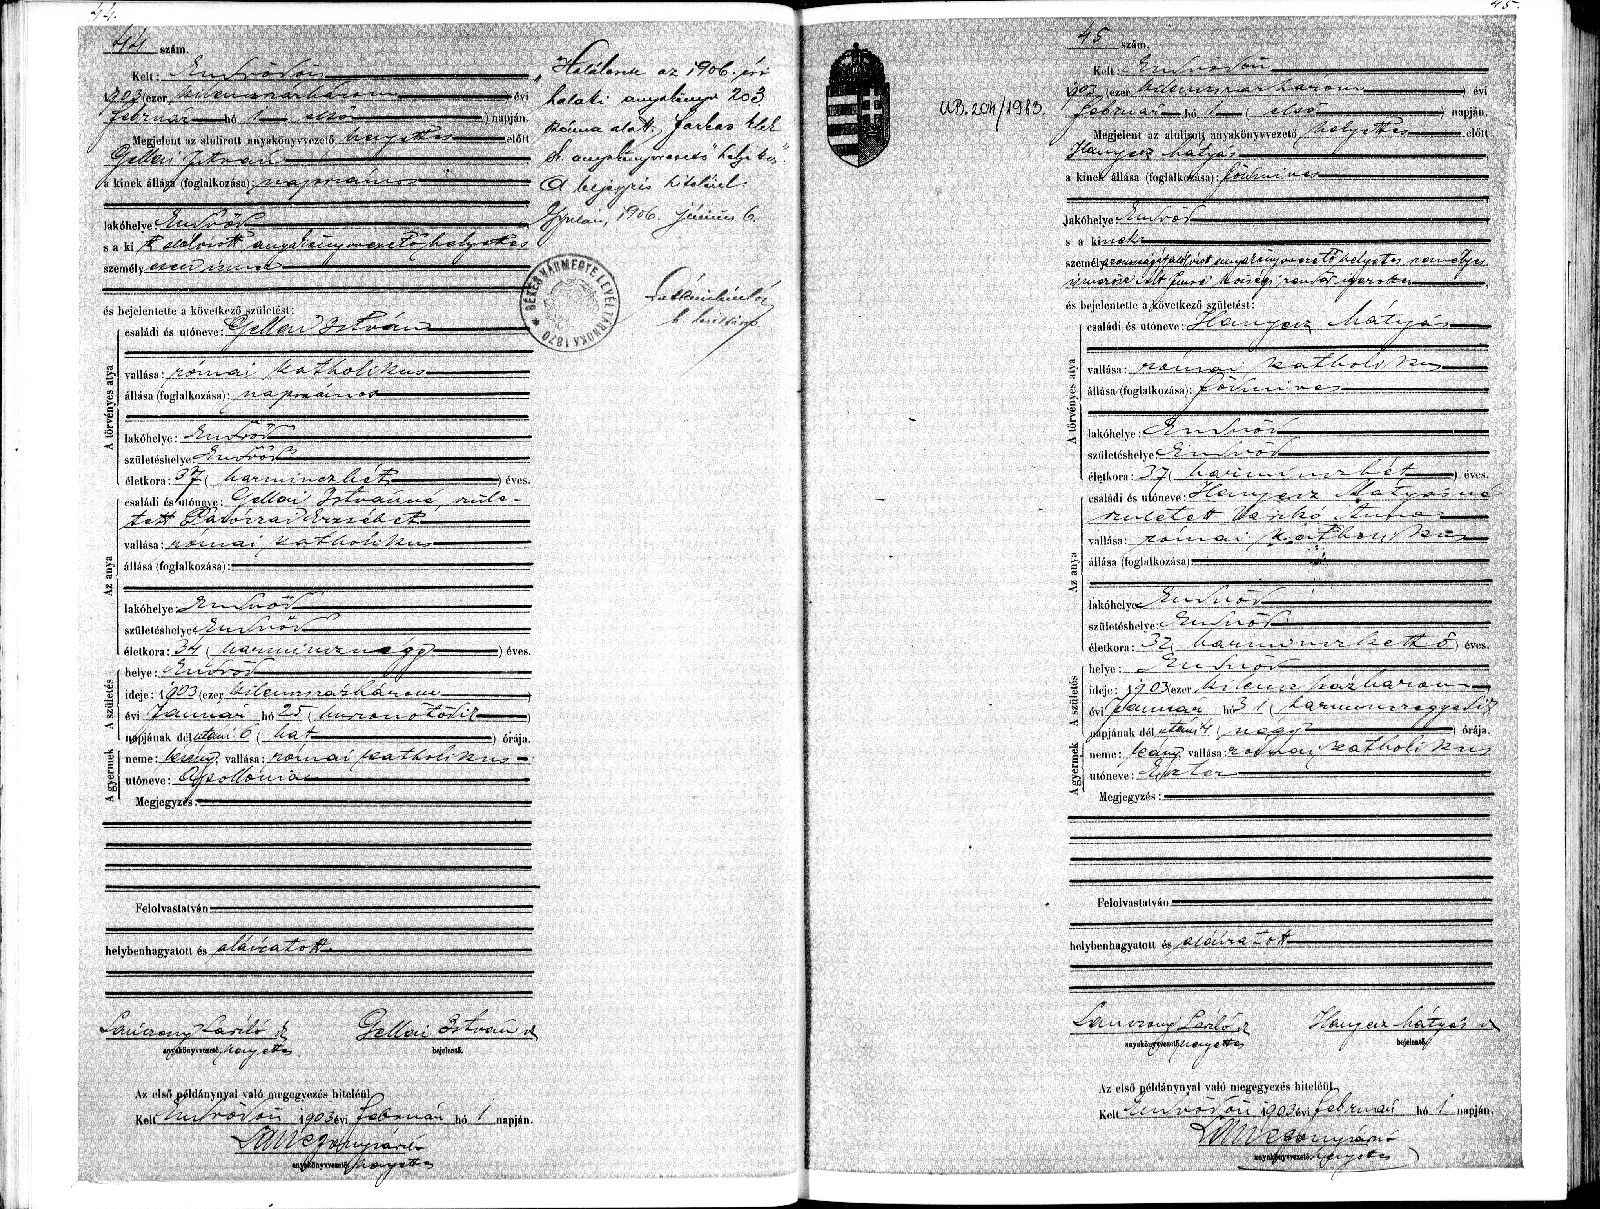 44.
44 szám.
Kelt: Endrődön
1903 (ezer kilencszázhárom) évi
február hó 1 (első) napján.
Megjelent az alulirott anyakönyvvezető helyettes előtt
Gellai István
a kinek állása (foglalkozása): napszámos
lakóhelye: Endrőd
s a ki t alulirott anyakönyvvezető helyettes
személyesen ismer
és bejelentette a következő születést:
A törvényes atya
családi és utóneve: Gellai István
vallása: római katholikus
állása (foglalkozása): napszámos
lakóhelye: Endrőd
születéshelye: Endrőd
életkora: 37 (harminczhét) éves.
Az anya
családi és utóneve: Gellai Istvánné, szüle-
tett Erzsébet
vallása: római katholikus
állása (foglalkozása):
lakóhelye: Endrőd
születéshelye: Endrőd
életkora: 34 (harmincznégy) éves.
A születés
helye: Endrőd
ideje: 1903 (ezer kilenczszázhárom
évi Január hó 25 (huszonötödik)
napjának délutáni 6 (hat) órája.
A gyermek
neme: leány, vallása: római katholikus
utóneve: Apollónia
Megjegyzés:
Felolvastatván
helybenhagyatott és aláiratott
László Gellai István
anyakönyvvezető helyettes bejelentő.
Az első példánynyal való megegyezés hiteléül
Kelt Endrődön 1903 évi február hó 1 napján.
anyakönyvvezető helyettes
"Halálesete az 1906. évi
halotti anyakönyv 203
száma alatt. Farkas
sk. anyakönyvvezető helyettes."
A bejegyzés hiteléül.
Gyulán, 1906. június 6.
BÉKÉSVÁRMEGYE LEVÉLTÁRNOKA 1870
45.
45 szám.
UB. 204/1983.
Kelt Endrődön
1903 (ezer kilenczszázhárom) évi
február hó 1 (első) napján.
Megjelent az alulirott anyakönyvvezető helyettes előtt
Hanyecz Mátyás
a kinek állása (foglalkozása): földmives
lakóhelye: Endrőd
s a kinek
személyazonosságát alulirott anyakönyvvezető helyettes személyes
községi rendőr
és bejelentette a következő születést:
A törvényes atya
családi és utóneve: Hanyecz Mátyás
vallása: római katholikus
állása (foglalkozása): földmives
lakóhelye: Endrőd
születéshelye: Endrőd
életkora: 37 (harminczhét) éves.
Az anya
családi és utóneve: Hanyecz Mátyásné
született Anna
vallása: római katholikus
állása (foglalkozása):
lakóhelye: Endrőd
születéshelye: Endrőd
életkora: 32 (harminczkettő) éves.
A születés
helye: Endrőd
ideje: 1903 (ezer kilenczszázhárom
évi Január hó 31 (harminczegyedik
napjának délutáni 4 (négy) órája.
A gyermek
neme: leány, vallása: római katholikus
utóneve: Eszter
Megjegyzés:
Felolvastatván
helybenhagyatott és aláiratott
László Hanyecz Mátyás
anyakönyvvezető helyettes bejelentő.
Az első példánynyal való megegyezés hiteléül
Kelt Endrődön 1903 évi február hó 1 napján.
anyakönyvvezető helyettes